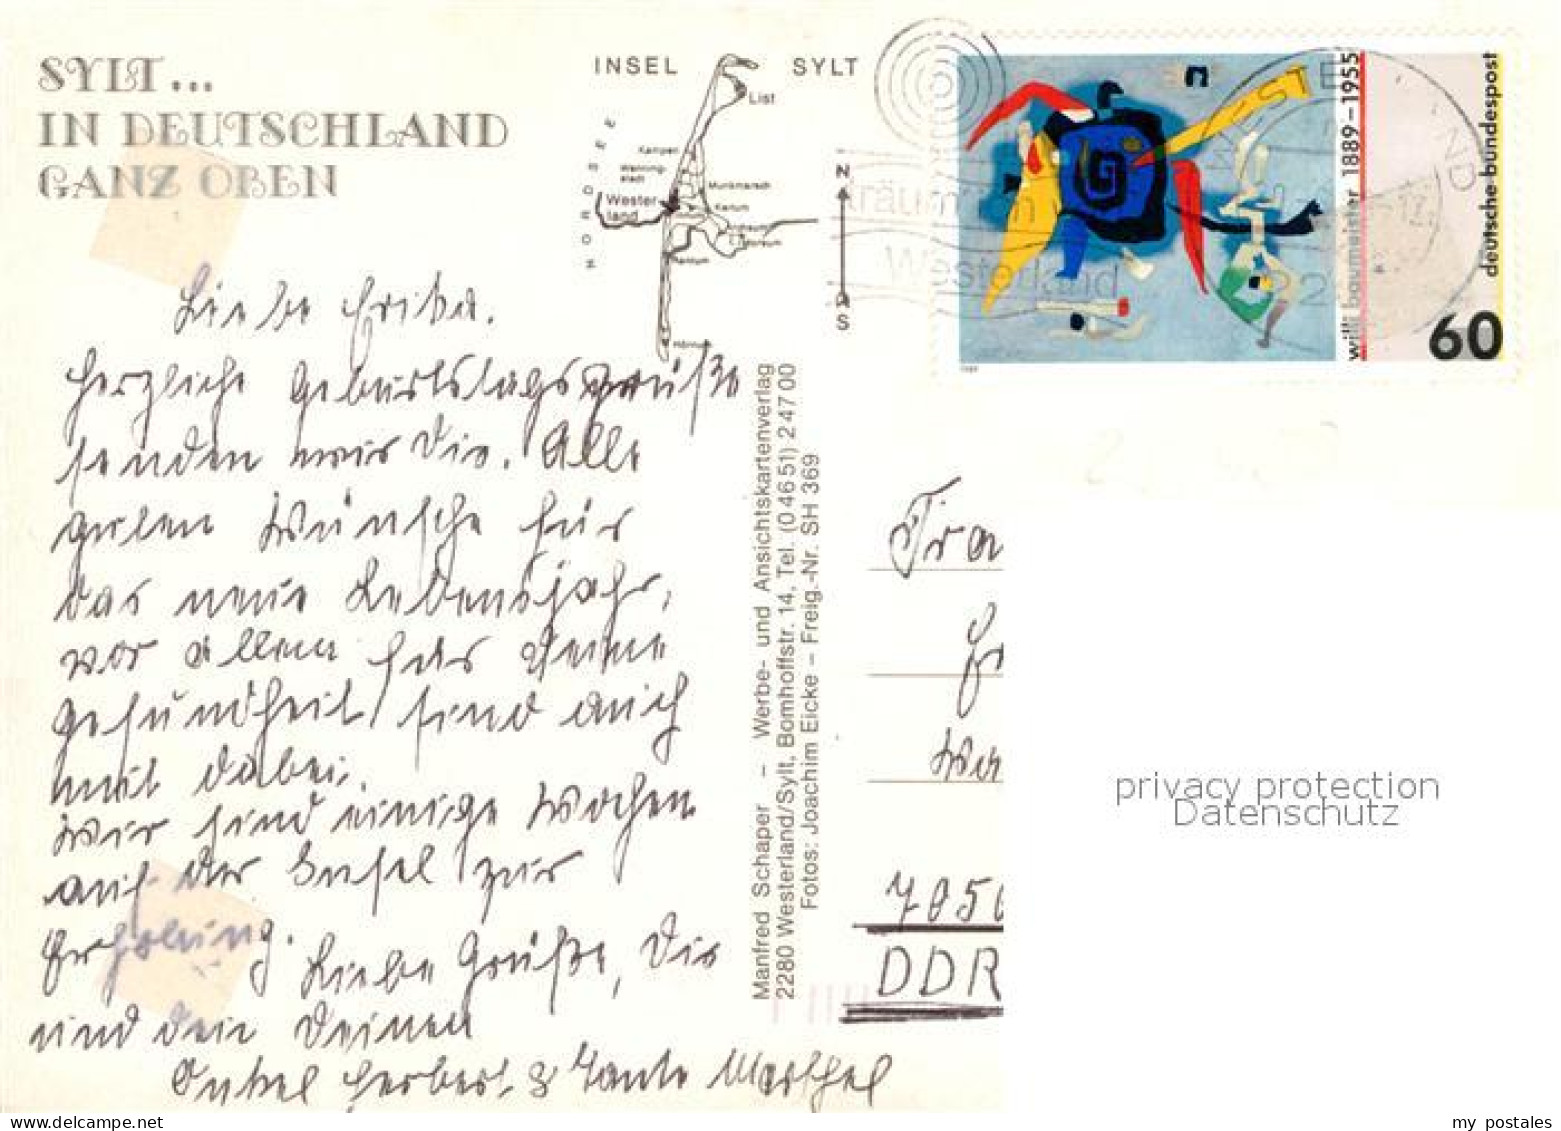 SYLT...
IN DEUTSCHLAND
GANZ OBEN
INSEL SYLT
List
Kampen
Wenning-
stedt
Munkmarsch
Wester
land
Keitum
Rantum
Hörnum
NORDSEE
N
S
Westerland
willi baumeister 1889–1955
deutsche bundespost
60
Liebe Erika.
Herzliche Geburtstagsgrüße
senden wir Dir. Alle
guten Wünsche für
das neue Lebensjahr,
vor allem für Deine
Gesundheit sind auch
mit dabei.
Wir sind einige Wochen
auf der Insel zur
Erholung. Liebe Grüße, Dir
und den Deinen
Onkel Herbert & Tante
Manfred Schaper – Werbe- und Ansichtskartenverlag
2280 Westerland/Sylt, Bomhoffstr. 14, Tel. (0 46 51) 2 47 00
Fotos: Joachim Eicke – Freig.-Nr. SH 369
Fra
705
DDR
privacy protection
Datenschutz
my postales